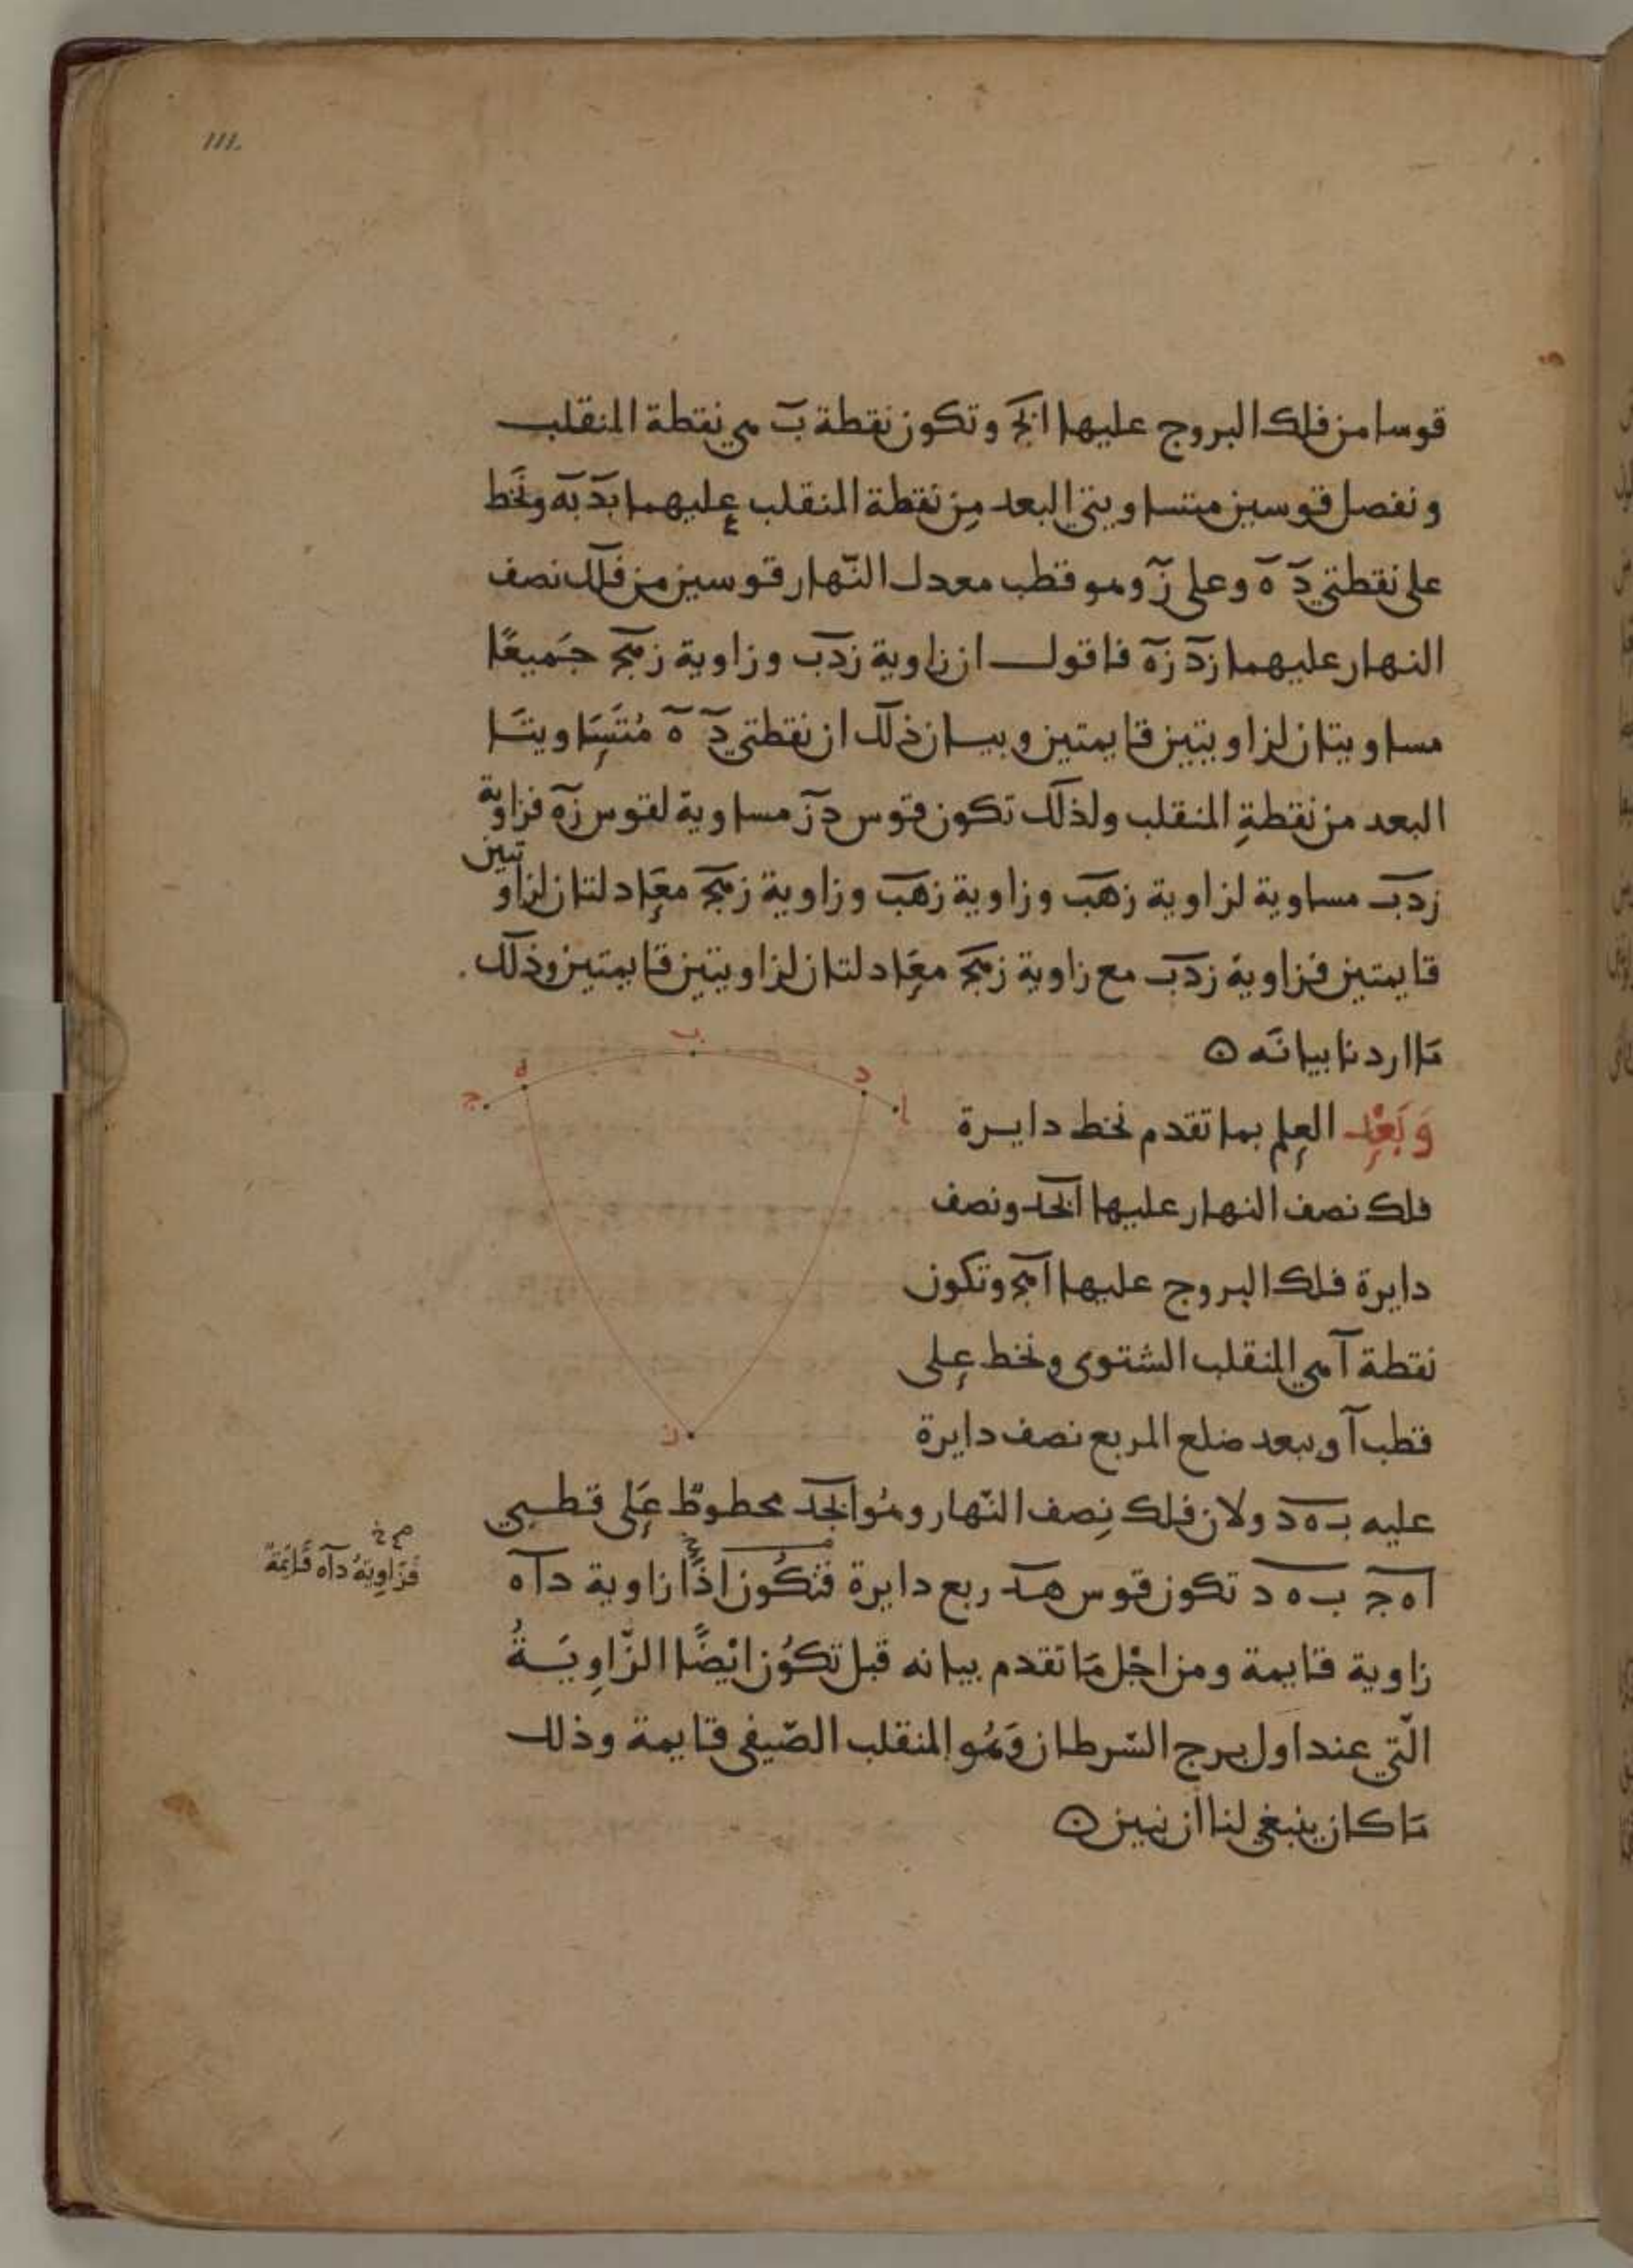 111.
قوسا من فلك البروج عليها ابج وتكون نقطة ب هي نقطة المنقلب
ونفصل قوسين متساويتي البعد من نقطة المنقلب عليهما بد به ونخط
على نقطتي د ه وعلى ز وهو قطب معدل النهار قوسين من فلك نصف
النهار عليهما زد زه فاقول ان زاوية زدب وزاوية زهج جميعا
مساويتان لزاويتين قايمتين وبيان ذلك ان نقطتي د ه متساويتا
البعد من نقطة المنقلب ولذلك تكون قوس دز مساوية لقوس زه فزاوية
زدب مساوية لزاوية زهب وزاوية زهب وزاوية زهج معادلتان لزاويتين
قايمتين فزاوية زدب مع زاوية زهج معادلتان لزاويتين قايمتين وذلك
ما اردنا بيانه
ب
د
ه
ا
ج
ز
وبعد العلم بما تقدم نخط دايرة
فلك نصف النهار عليها ابجد ونصف
دايرة فلك البروج عليها اهج وتكون
نقطة ا هي المنقلب الشتوى ونخط على
قطب ا وببعد ضلع المربع نصف دايرة
عليه ب ه د ولان فلك نصف النهار وهو ابجد مخطوط على قطبي
ا ه ج ب ه د تكون قوس هد ربع دايرة فتكون اذا زاوية داه
فزاوية داه قايمة
زاوية قايمة ومن اجل ما تقدم بيانه قبل تكون ايضا الزاوية
التي عند اول برج السرطان وهو المنقلب الصيفي قايمة وذلك
ما كان ينبغي لنا ان نبين